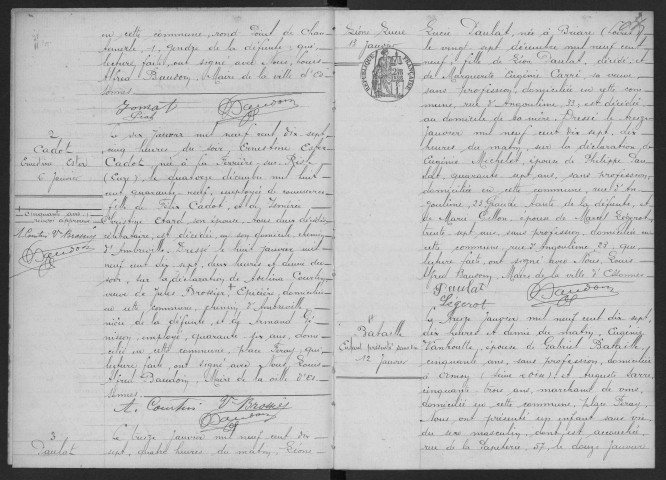 en cette commune, rond point de Chan-
temerle, 1, gendre de la défunte; qui,
lecture faite, ont signé avec Nous, Louis
Alfred Baudon, Maire de la ville d'Es-
sonnes.
Baudon
2
Cadot
Ernestine Ester
6 janvier
Le six janvier mil neuf cent dix sept,
cinq heures du soir, Ernestine Ester
Cadot, née à la Ferrière sur Risle
(Eure) le quatorze décembre mil huit
cent quarante neuf, employée de commerce,
fille de Felix Cadot, et de
son épouse, tous deux décédés,
célibataire, est décédée en son domicile, chemin
d'Ambreville. Dressé le huit janvier mil
neuf cent dix sept, deux heures et demie du
soir, sur la déclaration de
veuve de Jules Brossier, épicière, domiciliée
en cette commune, chemin d'Ambreville,
nièce de la défunte, et de Armand
employé, quarante six ans, domi-
cilié en cette commune, place Feray, qui,
lecture faite, ont signé avec Nous, Louis
Alfred Baudon, Maire de la ville d'Es-
sonnes.
A. Courtin Vve Brossier
Baudon
A. Courtin Vve Brossier
Baudon
3
Paulat
Le treize janvier mil neuf cent dix
sept, quatre heures du matin, Léone
Léone Lucie
13 janvier
RÉPUBLIQUE FRANÇAISE
Lucie Paulat, née à Briare (Loiret)
le vingt sept décembre mil neuf cent
neuf, fille de Léon Paulat, décédé, et
de Marguerite Eugénie Carré, sa veuve
sans profession, domiciliée en cette com-
mune, rue d'Angoulême, 23, est décédée
au domicile de sa mère. Dressé le treize
janvier mil neuf cent dix sept, dix
heures du matin, sur la déclaration de
Eugénie Mechelet, épouse de Philippe Pau-
lat, quarante sept ans, sans profession,
domiciliée en cette commune, rue d'An-
goulême, 23 Grande tante de la défunte, et
de Marie Collon, épouse de Marcel Légerot,
trente sept ans, sans profession, domiciliée en
cette commune, rue d'Angoulême 23, qui,
lecture faite, ont signé avec Nous, Louis
Alfred Baudon, Maire de la ville d'Essonnes.
Paulat
Légerot
Baudon
4
Bataille
Enfant présenté sans vie
12 janvier
Le treize janvier mil neuf cent dix sept,
dix heures et demie du matin, Eugénie
épouse de Gabriel Bataille,
cinquante ans, sans profession, domiciliée
à Ormoy (Seine et Oise) et Auguste
cinquante trois ans, marchand de vins,
domicilié en cette commune, place Feray,
Nous ont présenté un enfant sans vie
du sexe masculin, dont est accouchée
rue de la Papeterie, 57, le douze janvier